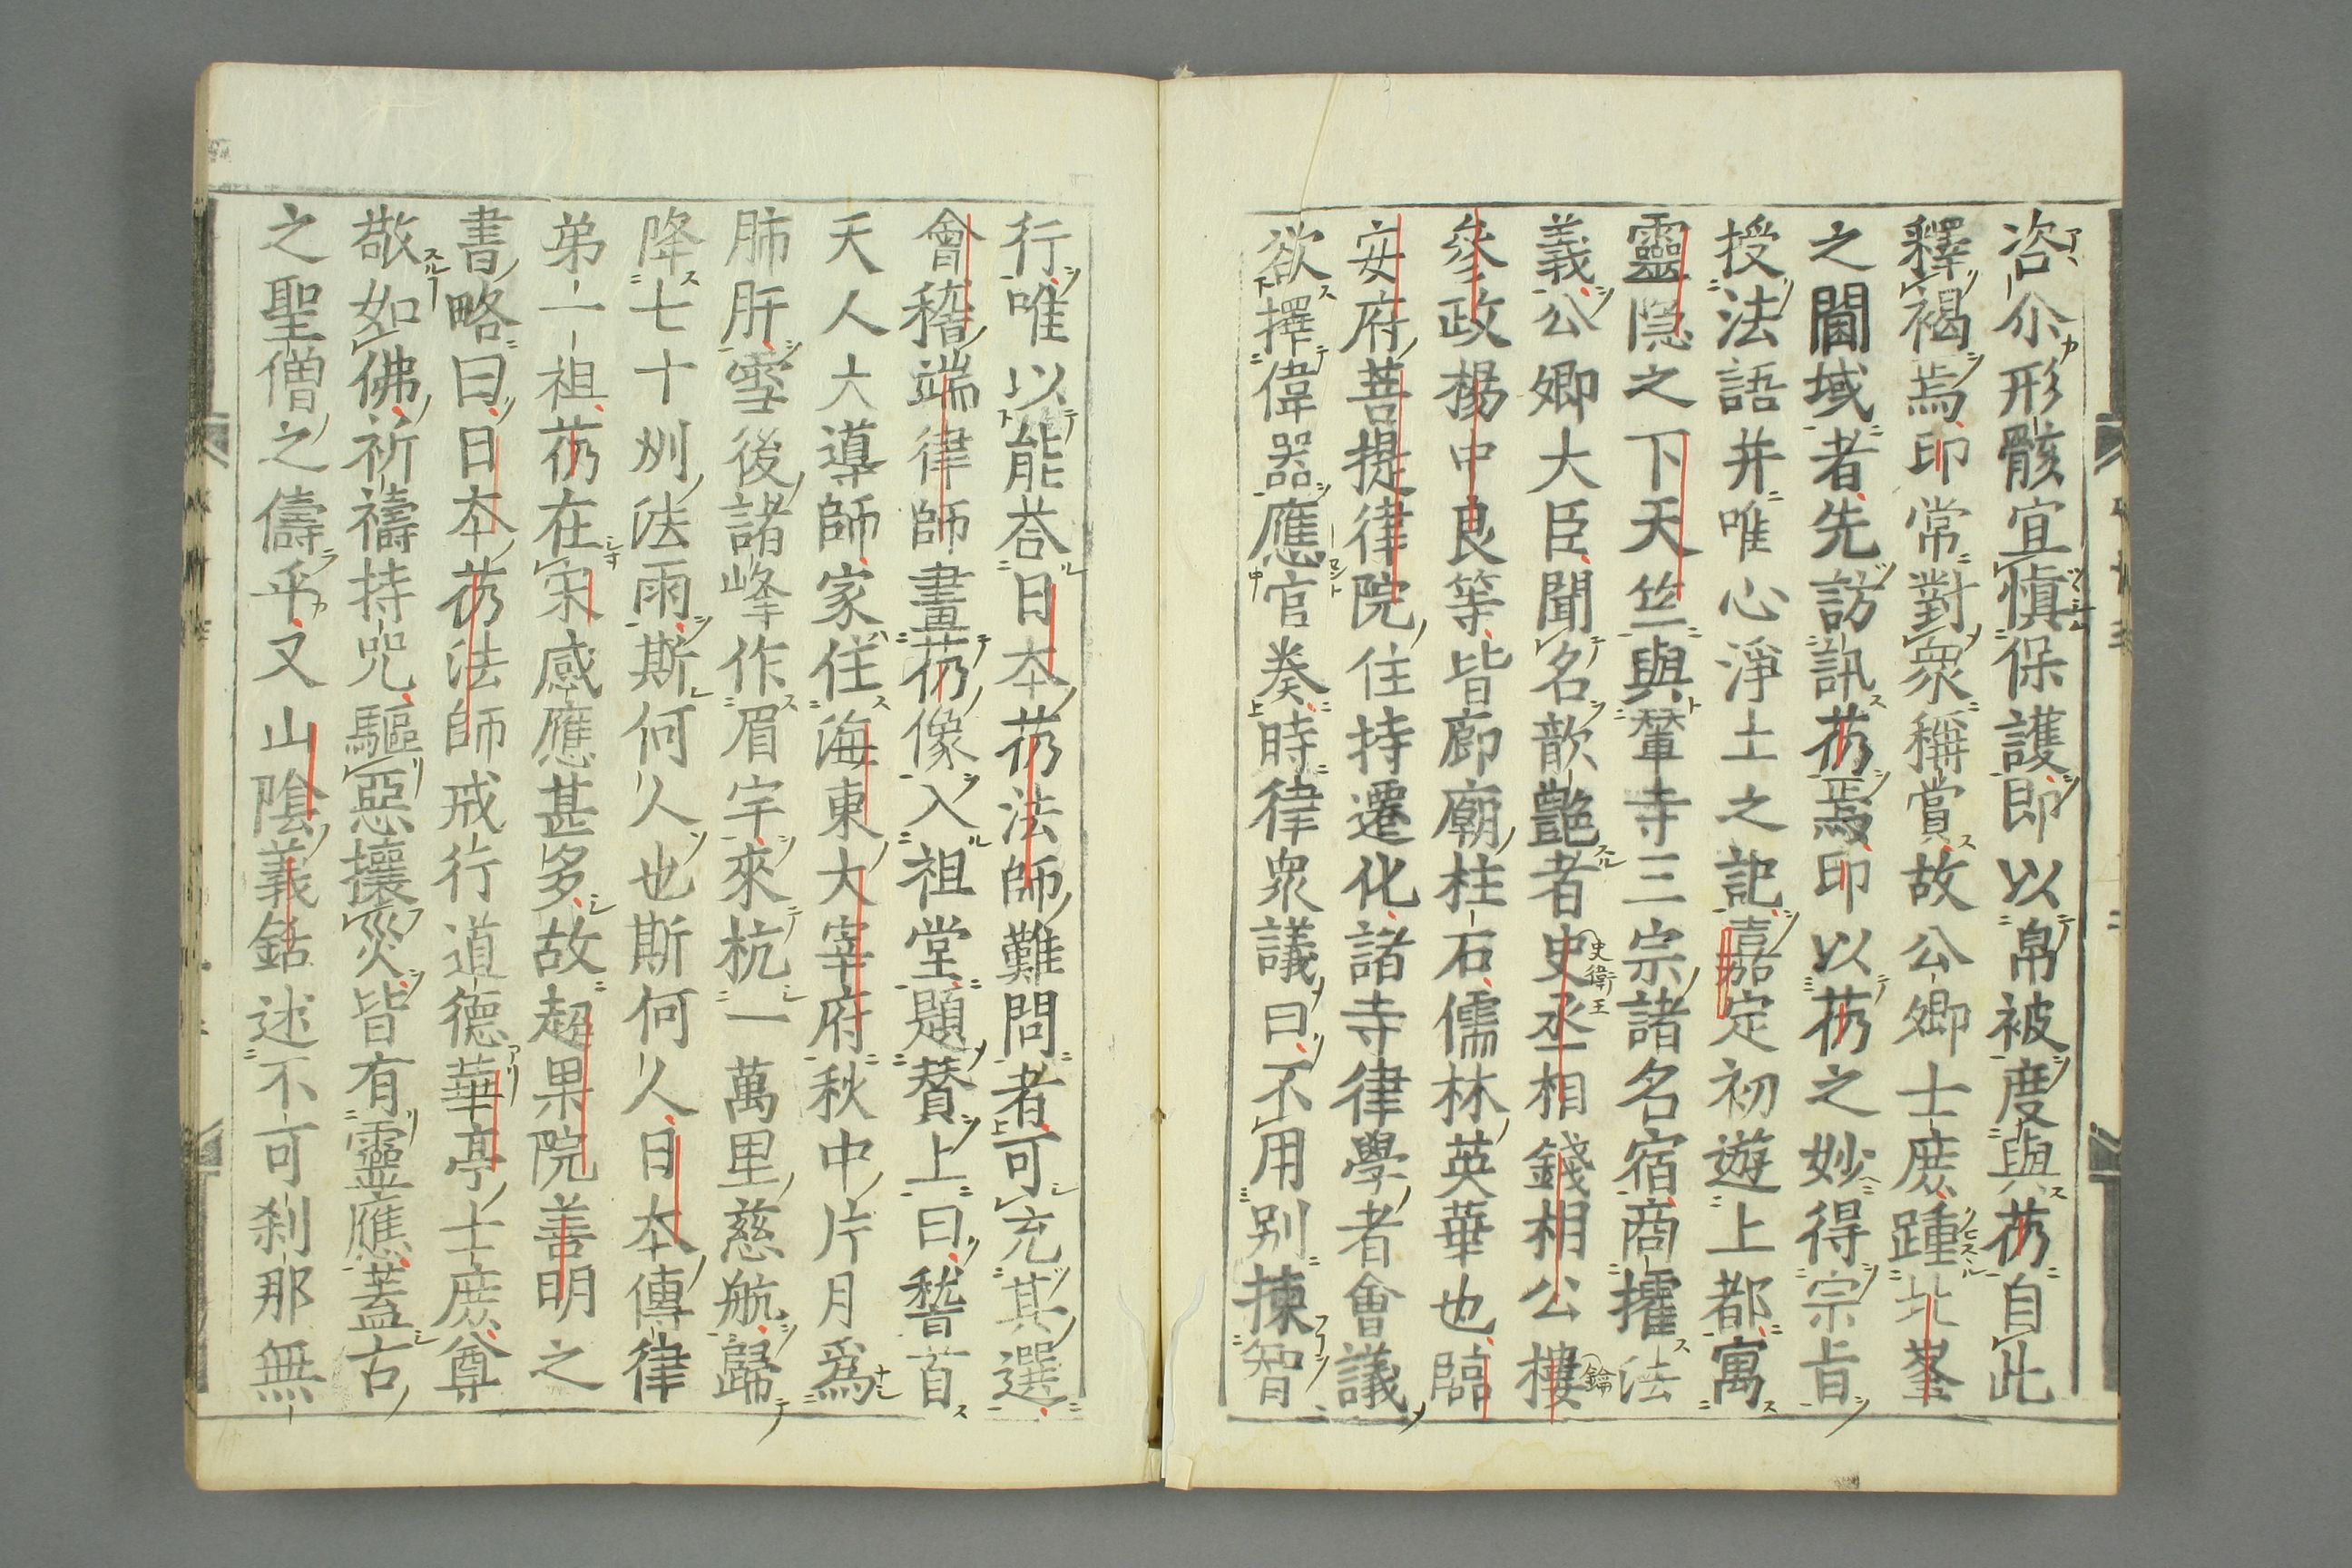 咨尒形骸宜慎保護即以帛被度與芿自此
釋褐焉印常對衆稱賞故公卿士庶踵北峯
之閫域者先訪訊芿焉印以芿之妙得宗旨
授法語并唯心淨土之記嘉定初遊上都寓
靈隠之下天竺與輦寺三宗諸名宿商擢法
義公卿大臣聞名歆艶者史丞相錢相公樓
參政楊中良等皆廊廟柱石儒林英華也臨
安府菩提律院住持遷化諸寺律學者會議
欲擇偉器應官奏時律衆議曰不用別揀智
行唯以能荅日本芿法師難問者可充其選
會稽端律師畫芿像入祖堂題賛上曰稽首
天人大導師家住海東大宰府秋中片月爲
肺肝雪後諸峰作眉宇來杭一萬里慈航歸
降七十州法雨斯何人也斯何人日本傳律
弟一祖芿在宋感應甚多故超果院善明之
書略曰日本芿法師戒行道德華亭士庶尊
敬如佛祈禱持咒驅惡攘災皆有靈應蓋古
之聖僧之儔乎又山陰義銛述不可刹那無